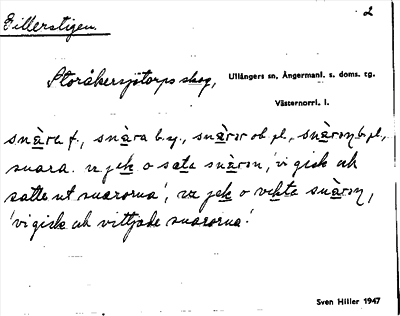 Gillerstigen.
2
Storåkersjötorps skog, Ullångers sn, Ångermanl. s. doms. tg.
Västernorrl. l.
snàra f., snàra b.sg., snàrơr ob.pl., snàrơn b.pl.,
snara. vɩ jek o sata snàrơn, 'vi gick och
satte ut snarorna', vɩ jek o vekta snàrơn,
'vi gick och vittjade snarorna'.
Sven Hiller 1947